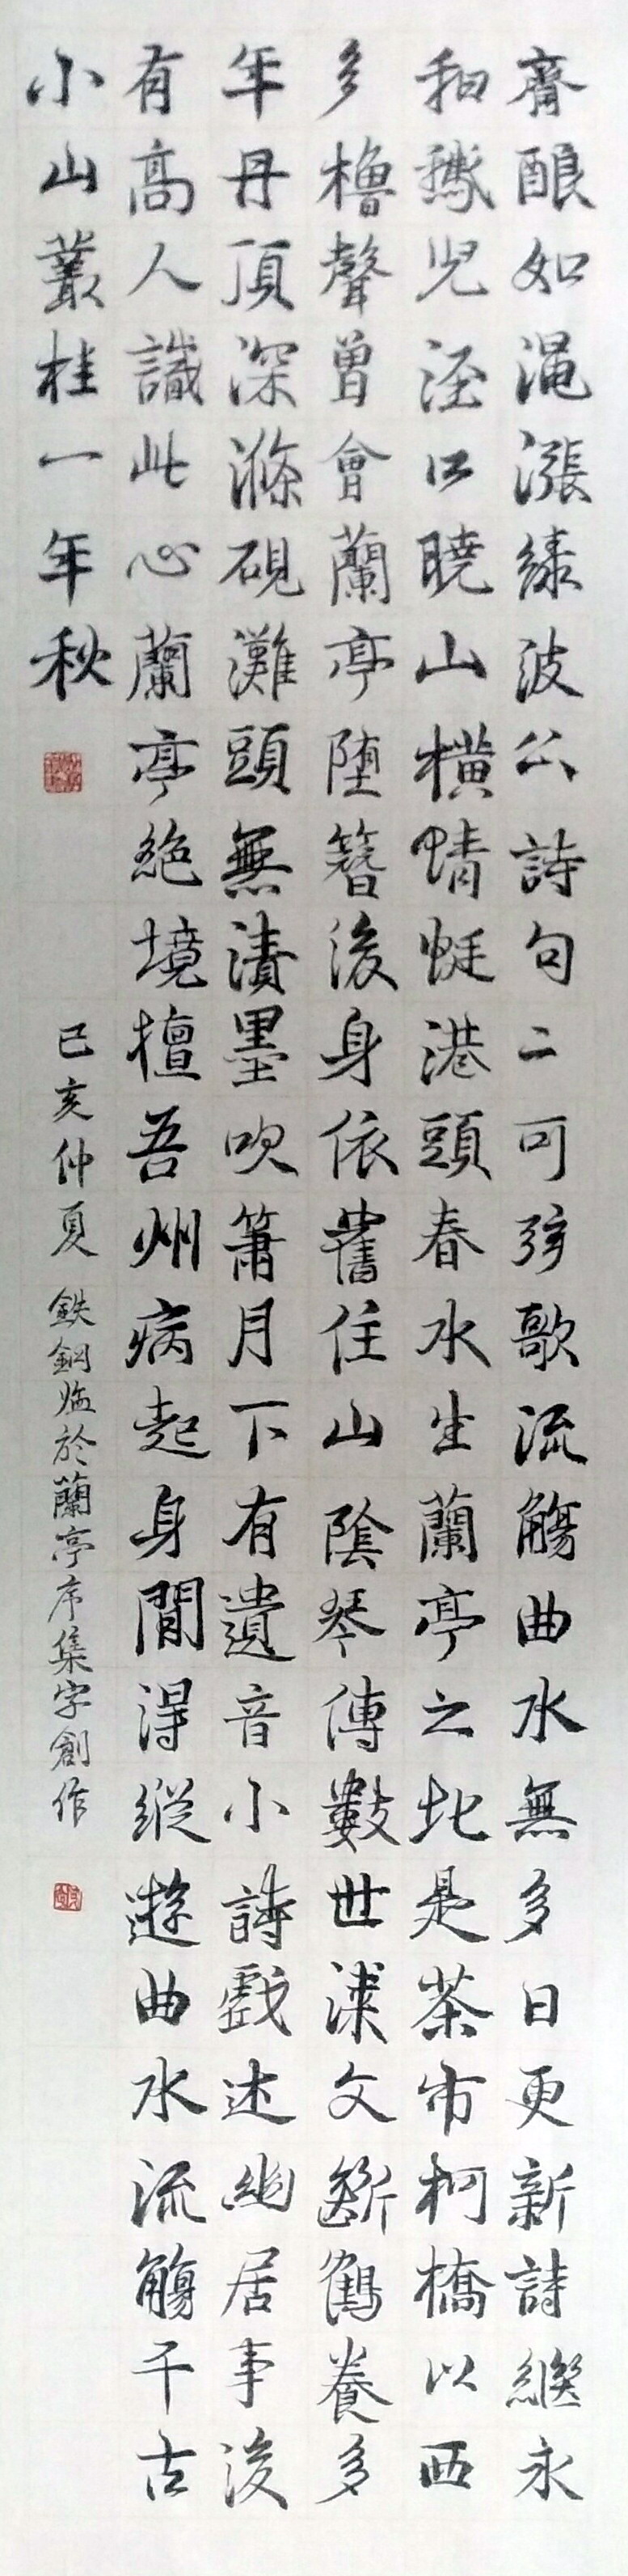 齋釀如澠漲綠波公詩句二可弦歌流觴曲水無多日更新詩繼永
和㹠兒涇口曉山橫蜻蜓港頭春水生蘭亭之北是茶市柯橋以西
多櫓聲曾會蘭亭墮簪後身依舊住山陰琴傳數世漆文斷鶴養多
年丹頂深滌硯灘頭無漬墨吹簫月下有遺音小詩戲述幽居事後
有高人識此心蘭亭絕境擅吾州病起身閒得縱遊曲水流觴千古
小山叢桂一年秋
己亥仲夏 鉄鋼臨於蘭亭序集字創作